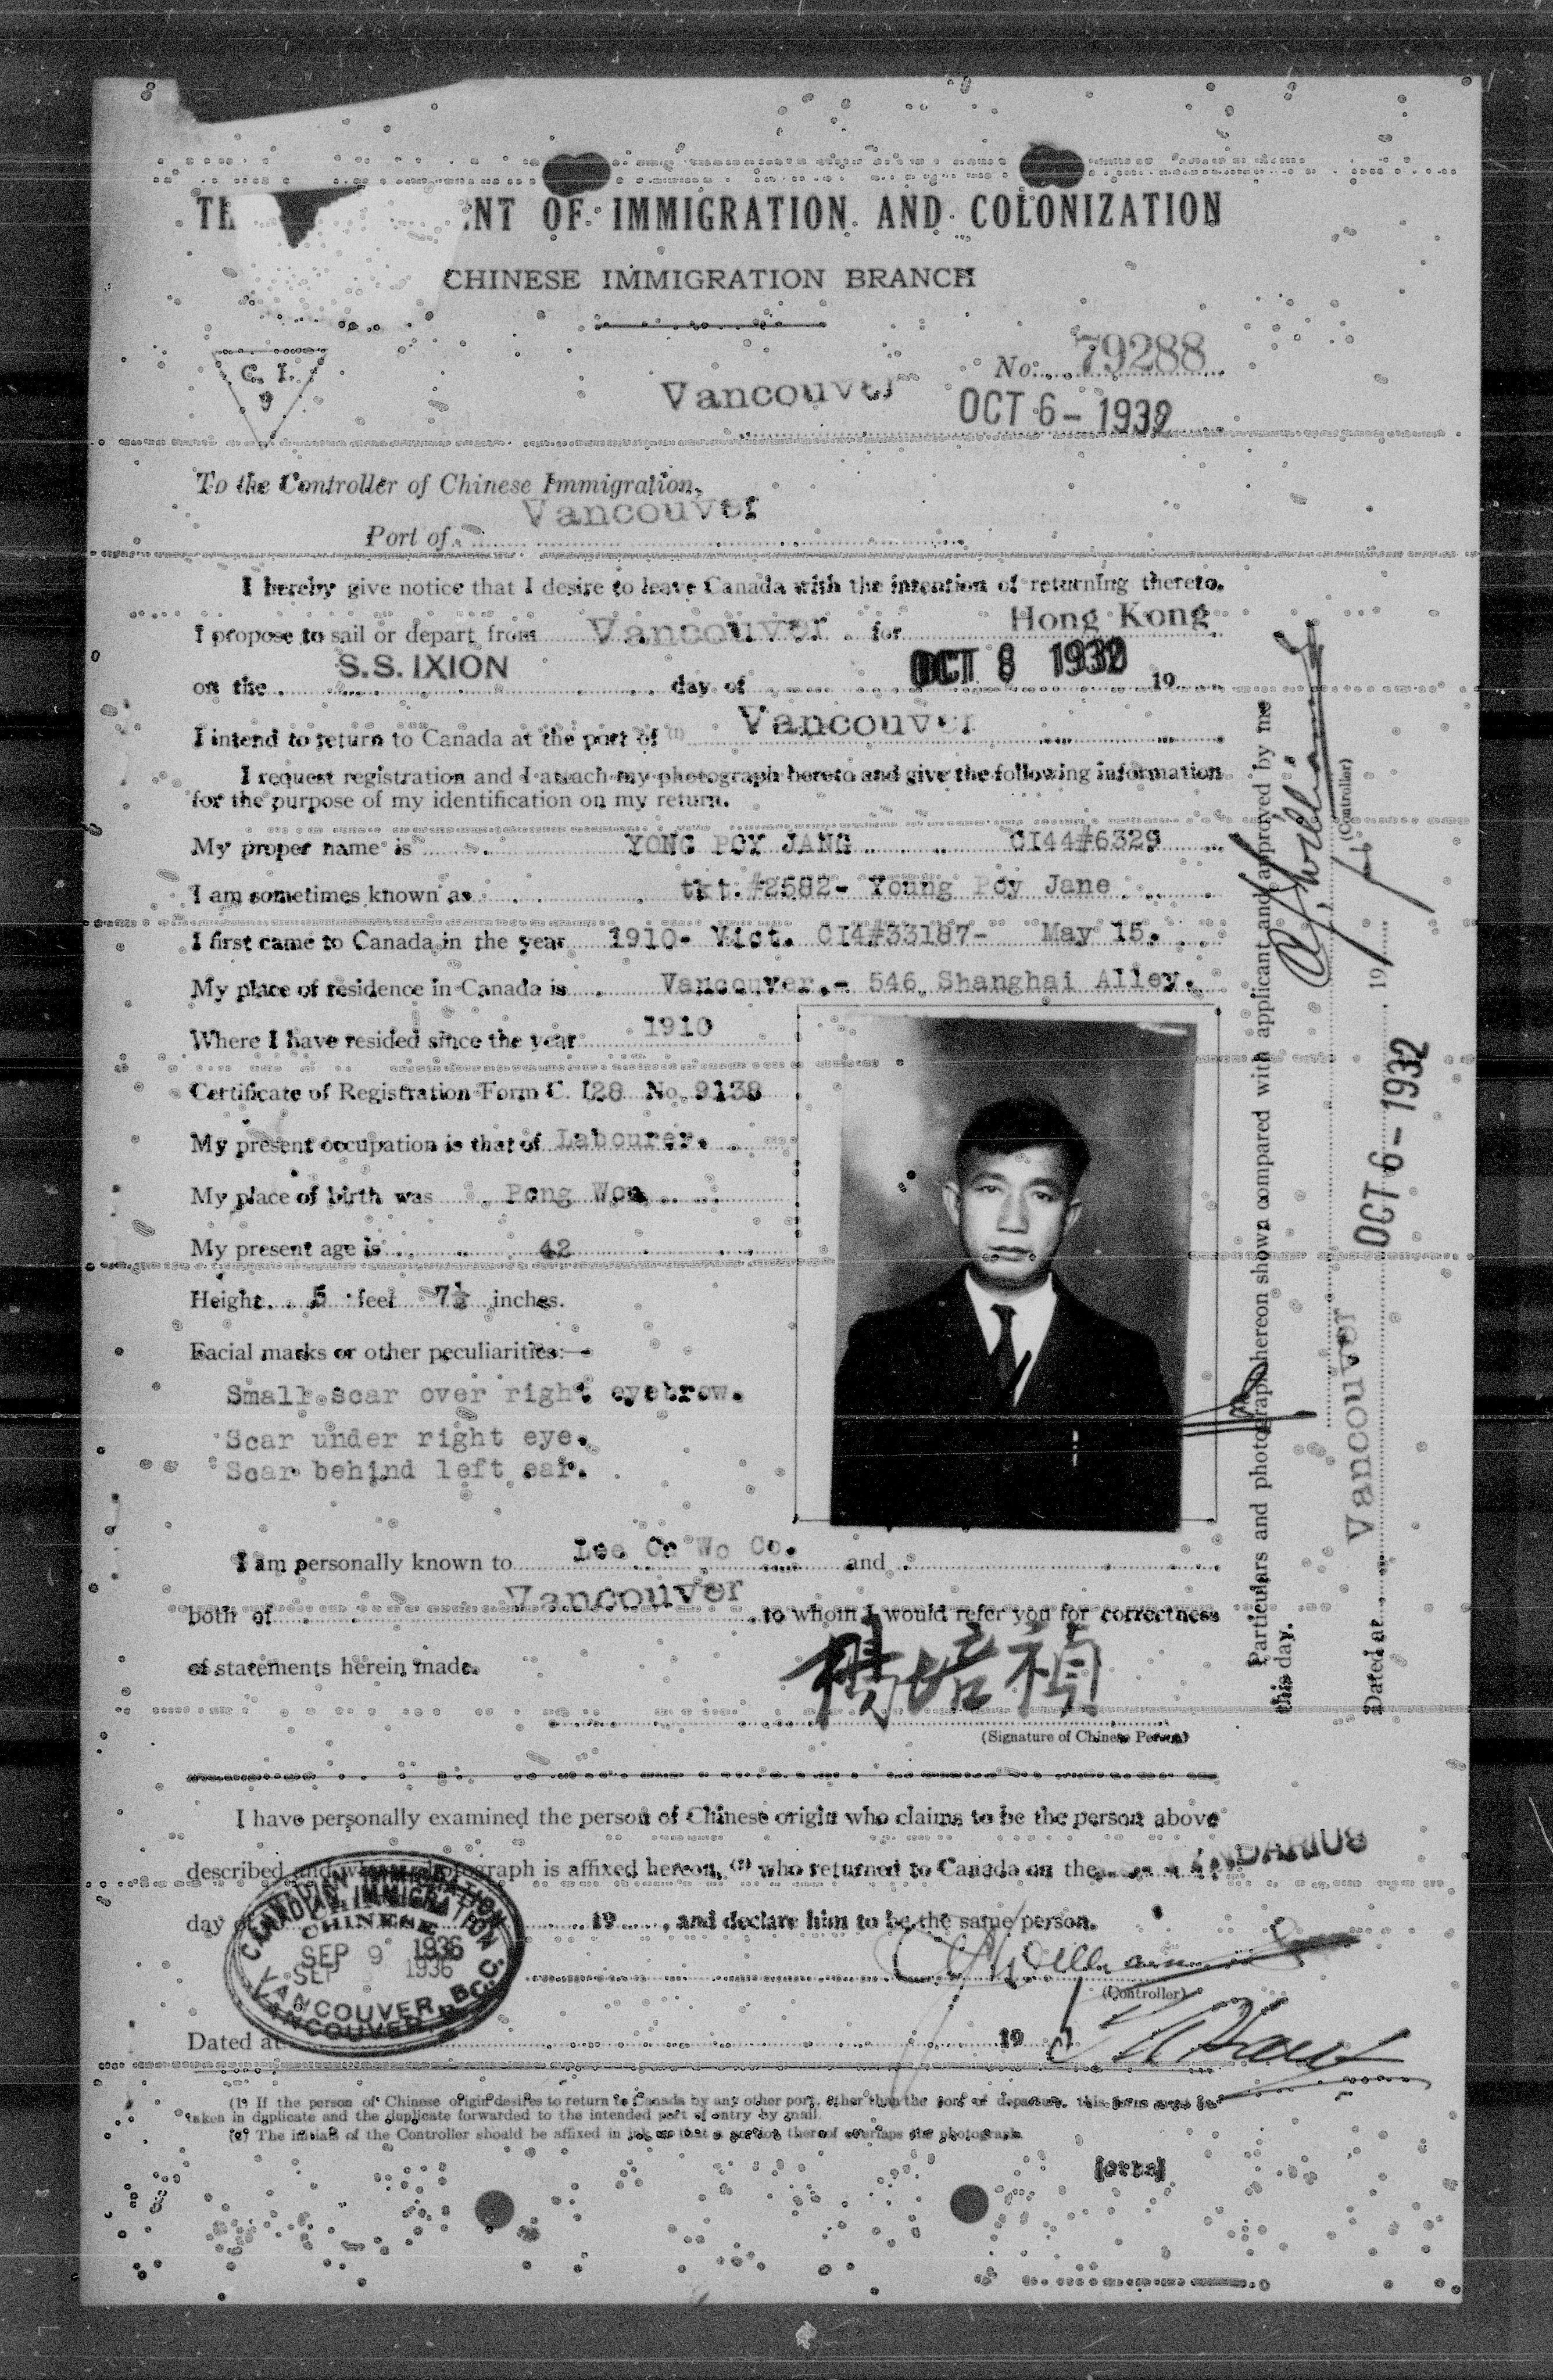 OF IMMIGRATION AND COLONIZATION
CHINESE IMMIGRATION BRANCH
C. I.
9
No. 79288
Vancouver OCT 6 - 1932
To the Controller of Chinese Immigration,
Vancouver
Port of
I hereby give notice that I desire to leave Canada with the intention of returning thereto.
I propose to sail or depart from Vancouver for Hong Kong
on the S.S. IXION day of OCT 8 1932 19
I intend to return to Canada at the port of (1) Vancouver
I request registration and I attach my photograph hereto and give the following information
for the purpose of my identification on my return.
My proper name is YONG POY JANG CI44#6329
I am sometimes known as tkt. #2582- Young Poy Jane
I first came to Canada in the year 1910- Vict. CI4#33187- May 15.
My place of residence in Canada is Vancouver.- 546 Shanghai Alley.
Where I have resided since the year 1910
Certificate of Registration Form C. I28 No. 9138
My present occupation is that of Labourer.
My place of birth was Pong Woo
My present age is 42
Height 5 feet 7½ inches.
Facial marks or other peculiarities:—
Small scar over right eyebrow.
Scar under right eye.
Scar behind left ear.
I am personally known to Lee On Wo Co. and
both of Vancouver to whom I would refer you for correctness
of statements herein made.
楊培禎
(Signature of Chinese Person)
I have personally examined the person of Chinese origin who claims to be the person above
described and whose photograph is affixed hereon, (2) who returned to Canada on the
day of 19 , and declare him to be the same person.
CANADIAN IMMIGRATION
CHINESE
SEP 9 1936
SEP 1936
VANCOUVER, B.C.
(Controller)
Dated at 19
(1) If the person of Chinese origin desires to return to Canada by any other port, other than the port of departure, this form must be
taken in duplicate and the duplicate forwarded to the intended port of entry by mail.
(2) The initials of the Controller should be affixed in ink so that a portion thereof overlaps the photograph.
[OVER]
Particulars and photograph hereon shown compared with applicant and approved by me
this day.
(Controller)
Dated at Vancouver OCT 6 - 1932 19